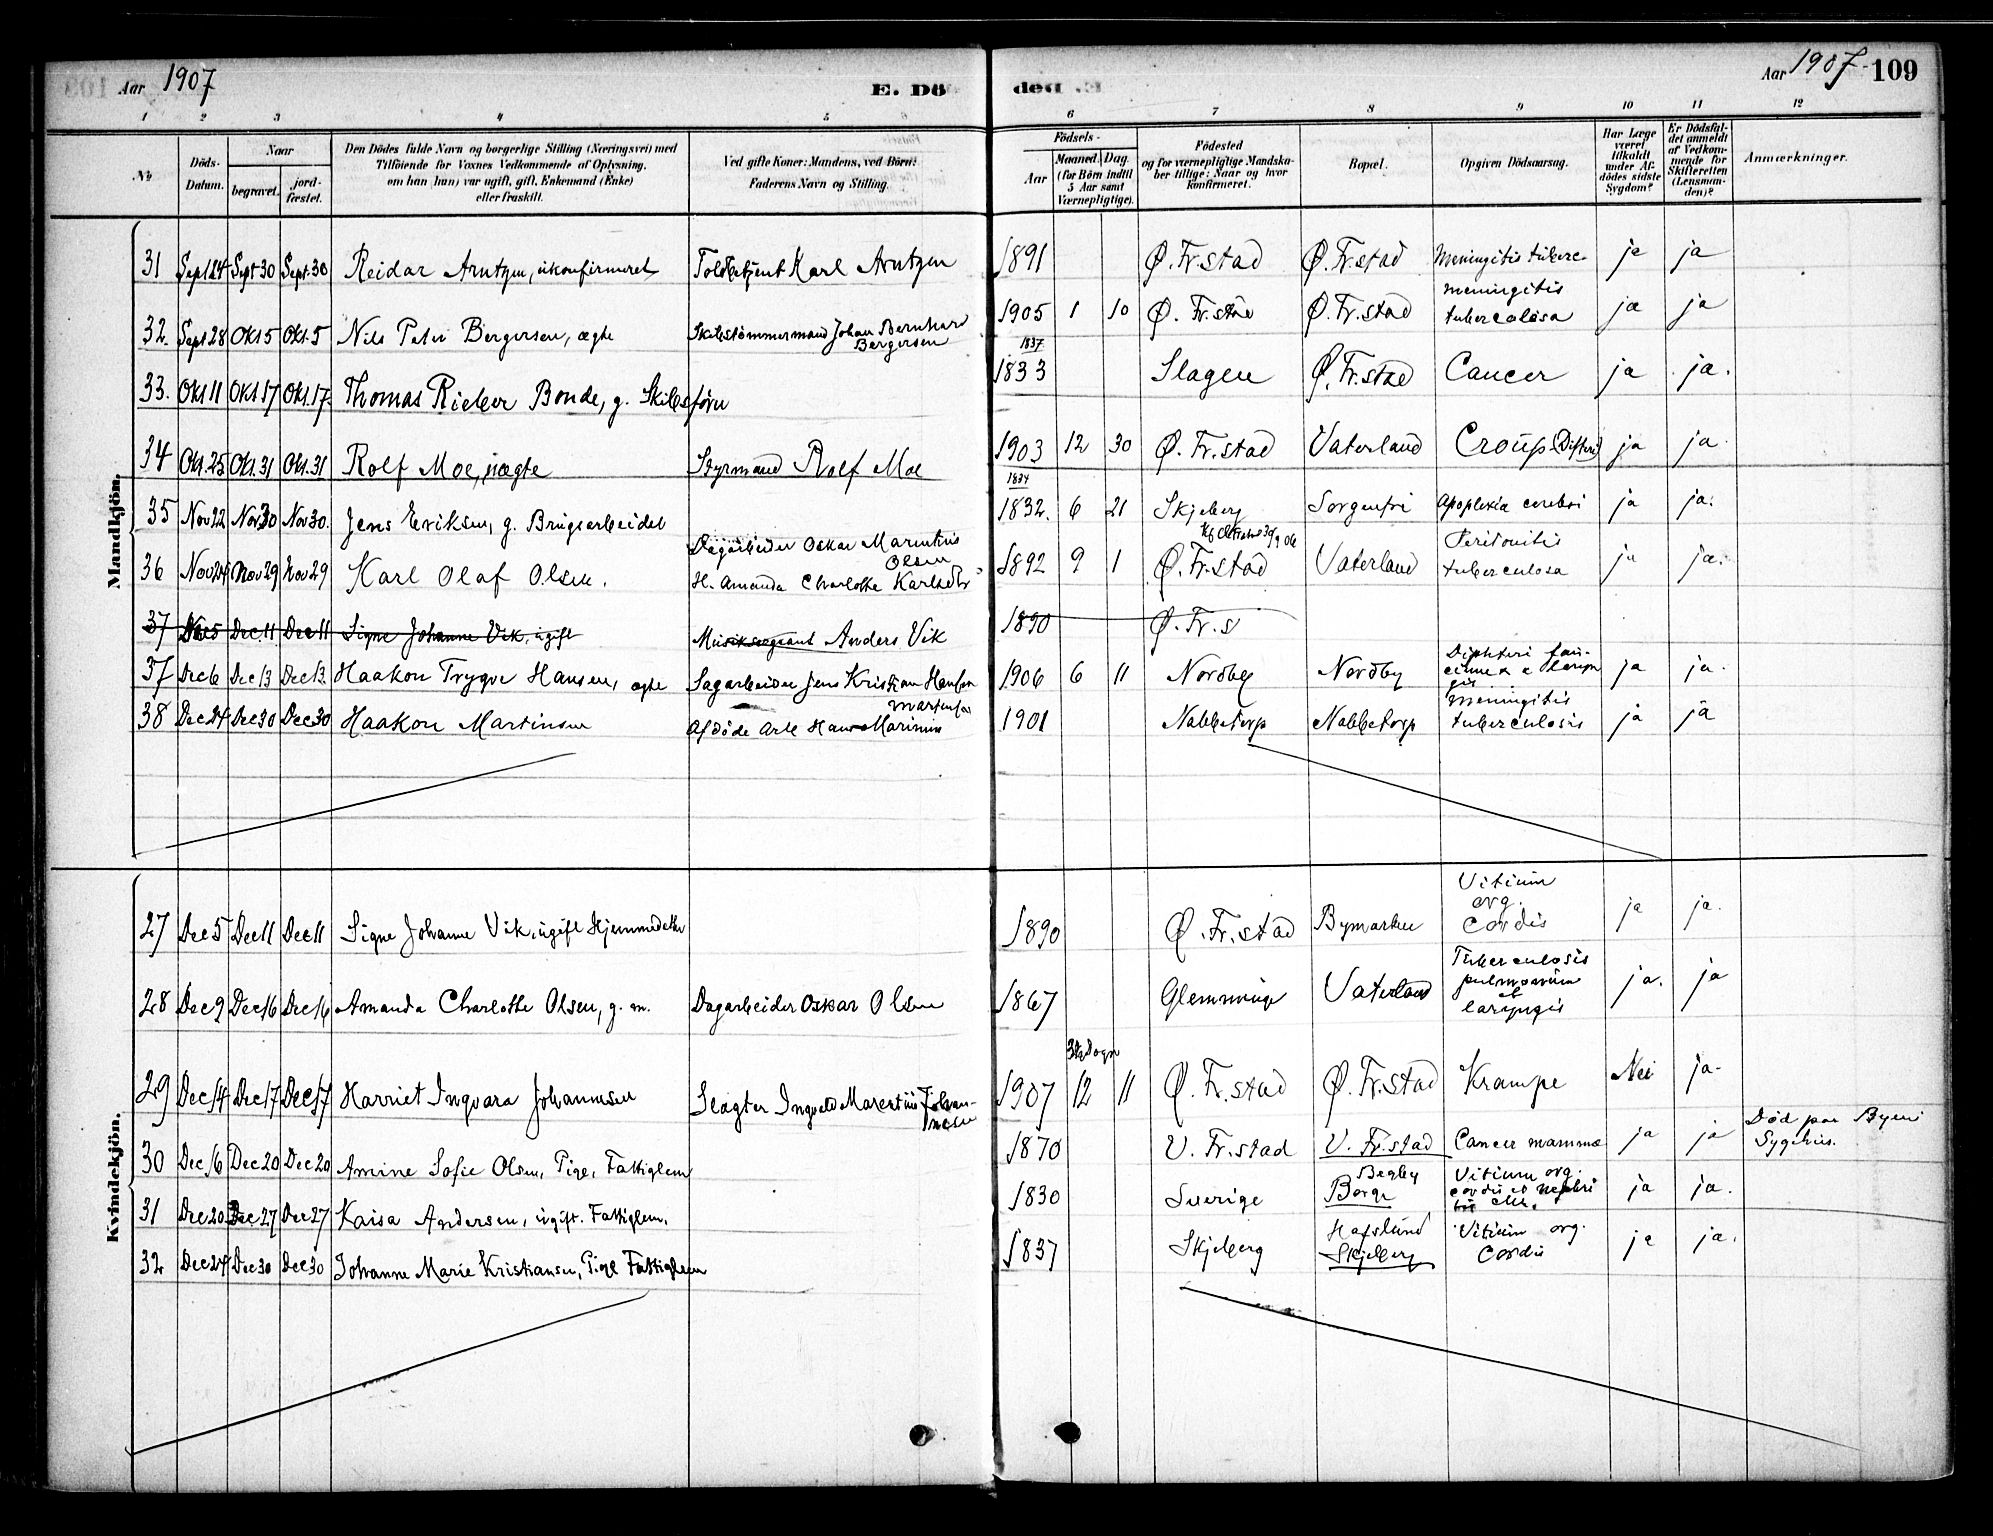 Aar 1907
E. Dö
ded
Aar 1907. 109
1 2 3 4 5 6 7 8 9 10 11 12
No
Döds-Datum.
Naar
begravet.
jord-fæstet.
Den Dödes fulde Navn og borgerlige Stilling (Næringsvei) med
Tilföiende for Voxnes Vedkommende af Oplysning,
om han (hun) var ugift, gift, Enkemand (Enke)
eller fraskilt.
Ved gifte Koner: Mandens, ved Börn:
Faderens Navn og Stilling.
Födsels-
Aar
Maaned. Dag.
(for Börn indtil
5 Aar samt
Værnepligtige).
Födested
og for værnepligtige Mandska-
ber tillige: Naar og hvor
konfirmeret.
Bopæl.
Opgiven Dödsaarsag.
Har Læge
været
tilkaldt
under Af-
dödes sidste
Sygdom?
Er Dödsfal-
det anmeldt
af Vedkom-
mende for
Skifteretten
(Lensman-
den)?
Anmærkninger.
Mandkjön.
31 Sept 24 Sept 30 Sept. 30 Reidar Arntzen, ukonfirmeret Toldbetjent Karl Arntzen 1891 Ø. Fr.stad Ø. Fr.stad Meningitis tuberc ja ja
32. Sept 28 Okt 5 Okt. 5 Nils Peter Bergersen, ægte Skibstømmermand Johan Bernhard Bergersen 1905 1 10 Ø. Fr.stad Ø. Fr.stad meningitis tuberculosa ja ja
33. Okt 11 Okt 17 Okt. 17. Thomas Rieber Bonde, g. Skibsfører 1837 1833 Slagen Ø. Fr.stad Cancer ja ja.
34 Okt. 25 Okt. 31 Okt. 31 Rolf Moe, uægte Styrmand Rolf Moe 1903 12 30 Ø. Fr.stad Vaterland Croup (Difteri) ja ja.
35 Nov 22 Nov 30 Nov 30. Jens Eriksen, g. Brugsarbeider 1834 1832. 6 21 Skjeberg Sorgenfri Apoplexia cerebri ja ja.
36 Nov 24 Nov 29 Nov 29 Karl Olaf Olsen. Dagarbeider Oskar Marentius Olsen H. Amanda Charlotte Karlsdtr 1892 9 1 Ø. Fr.stad Vaterland Peritonitis tuberculosa ja ja.
37 Dec 5 Dec. 11 Dec 11 Signe Johanne Vik, ugift Musiksergeant Anders Vik 1890 Ø. Fr. s
37 Dec 6 Dec 13 Dec 13. Haakon Trygve Hansen, ægte Sagarbeider Jens Kristian Hansen 1906 6 11 Nordby Nordby Diphteri ja ja.
38 Dec 24 Dec 30 Dec 30 Haakon Martinsen Afdöde Arb. Hans Marinius Martinsen 1901 Nabbetorp Nabbetorp meningitis tuberculosis ja ja
Kvindekjön.
27 Dec 5 Dec 11 Dec 11 Signe Johanne Vik, ugift Hjemmedatter 1890 Ø. Fr.stad Bymarken Vitium org. cordis ja ja.
28 Dec 9 Dec 16 Dec 16 Amanda Charlotte Olsen, g. m. Dagarbeider Oskar Olsen 1867 Glemminge Vaterland Tuberculosis pulmonum et laryngis ja. ja
29 Dec 14 Dec 17 Dec 17 Harriet Ingvara Johannesen Slagter Ingvald Marentius Johannesen 1907 12 11 Ø. Fr.stad Ø. Fr.stad Krampe Nei ja.
30 Dec 16 Dec 20 Dec 20 Amine Sofie Olsen, Pige, Fattiglem 1870 V. Fr.stad V. Fr.stad Cancer mammæ ja ja Död paa Byens Sygehus.
31 Dec 20 Dec 27 Dec 27 Kaisa Andersen, ugift. Fattiglem. 1830 Sverige Begby Borge Vitium org. cordis et nephritis chr. ja ja.
32 Dec 24 Dec 30 Dec 30 Johanne Marie Kristiansen, Pige Fattiglem 1837 Skjeberg Hafslund Skjeberg Vitium org. Cordis ja ja.